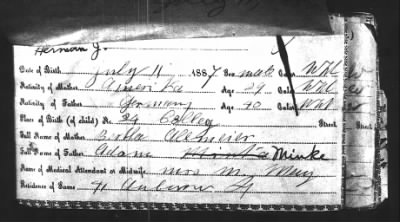 Herman J.
Date of Birth July 11 1887 Sex male Color Wht
Nativity of Mother America Age 29 Color Wht
Nativity of Father Germany Age 40 Color Wht
Place of Birth (of child) No. 24 Street
Full Name of Mother
Full Name of Father Adam Minke
Name of Medical Attendant or Midwife Mrs M. May
Residence of Same 71